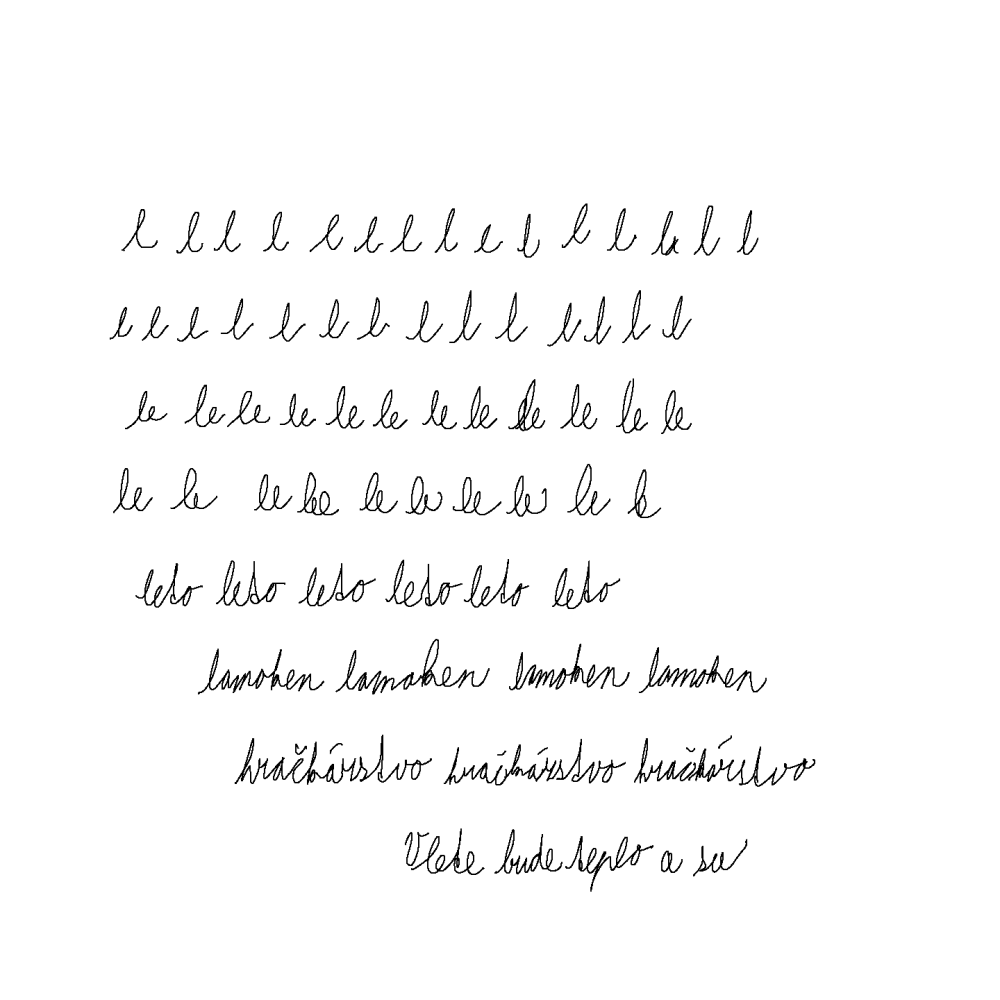 l l l l l l l l l l l l l l l
l l l l l l l l l l l l l l
le le le le le le le le le le le le
le le le le le le le le le le
leto leto leto leto leto leto
lamohen lamohen lamohen lamohen
hračkárstvo hračkárstvo hračkárstvo
V lete bude teplo a su